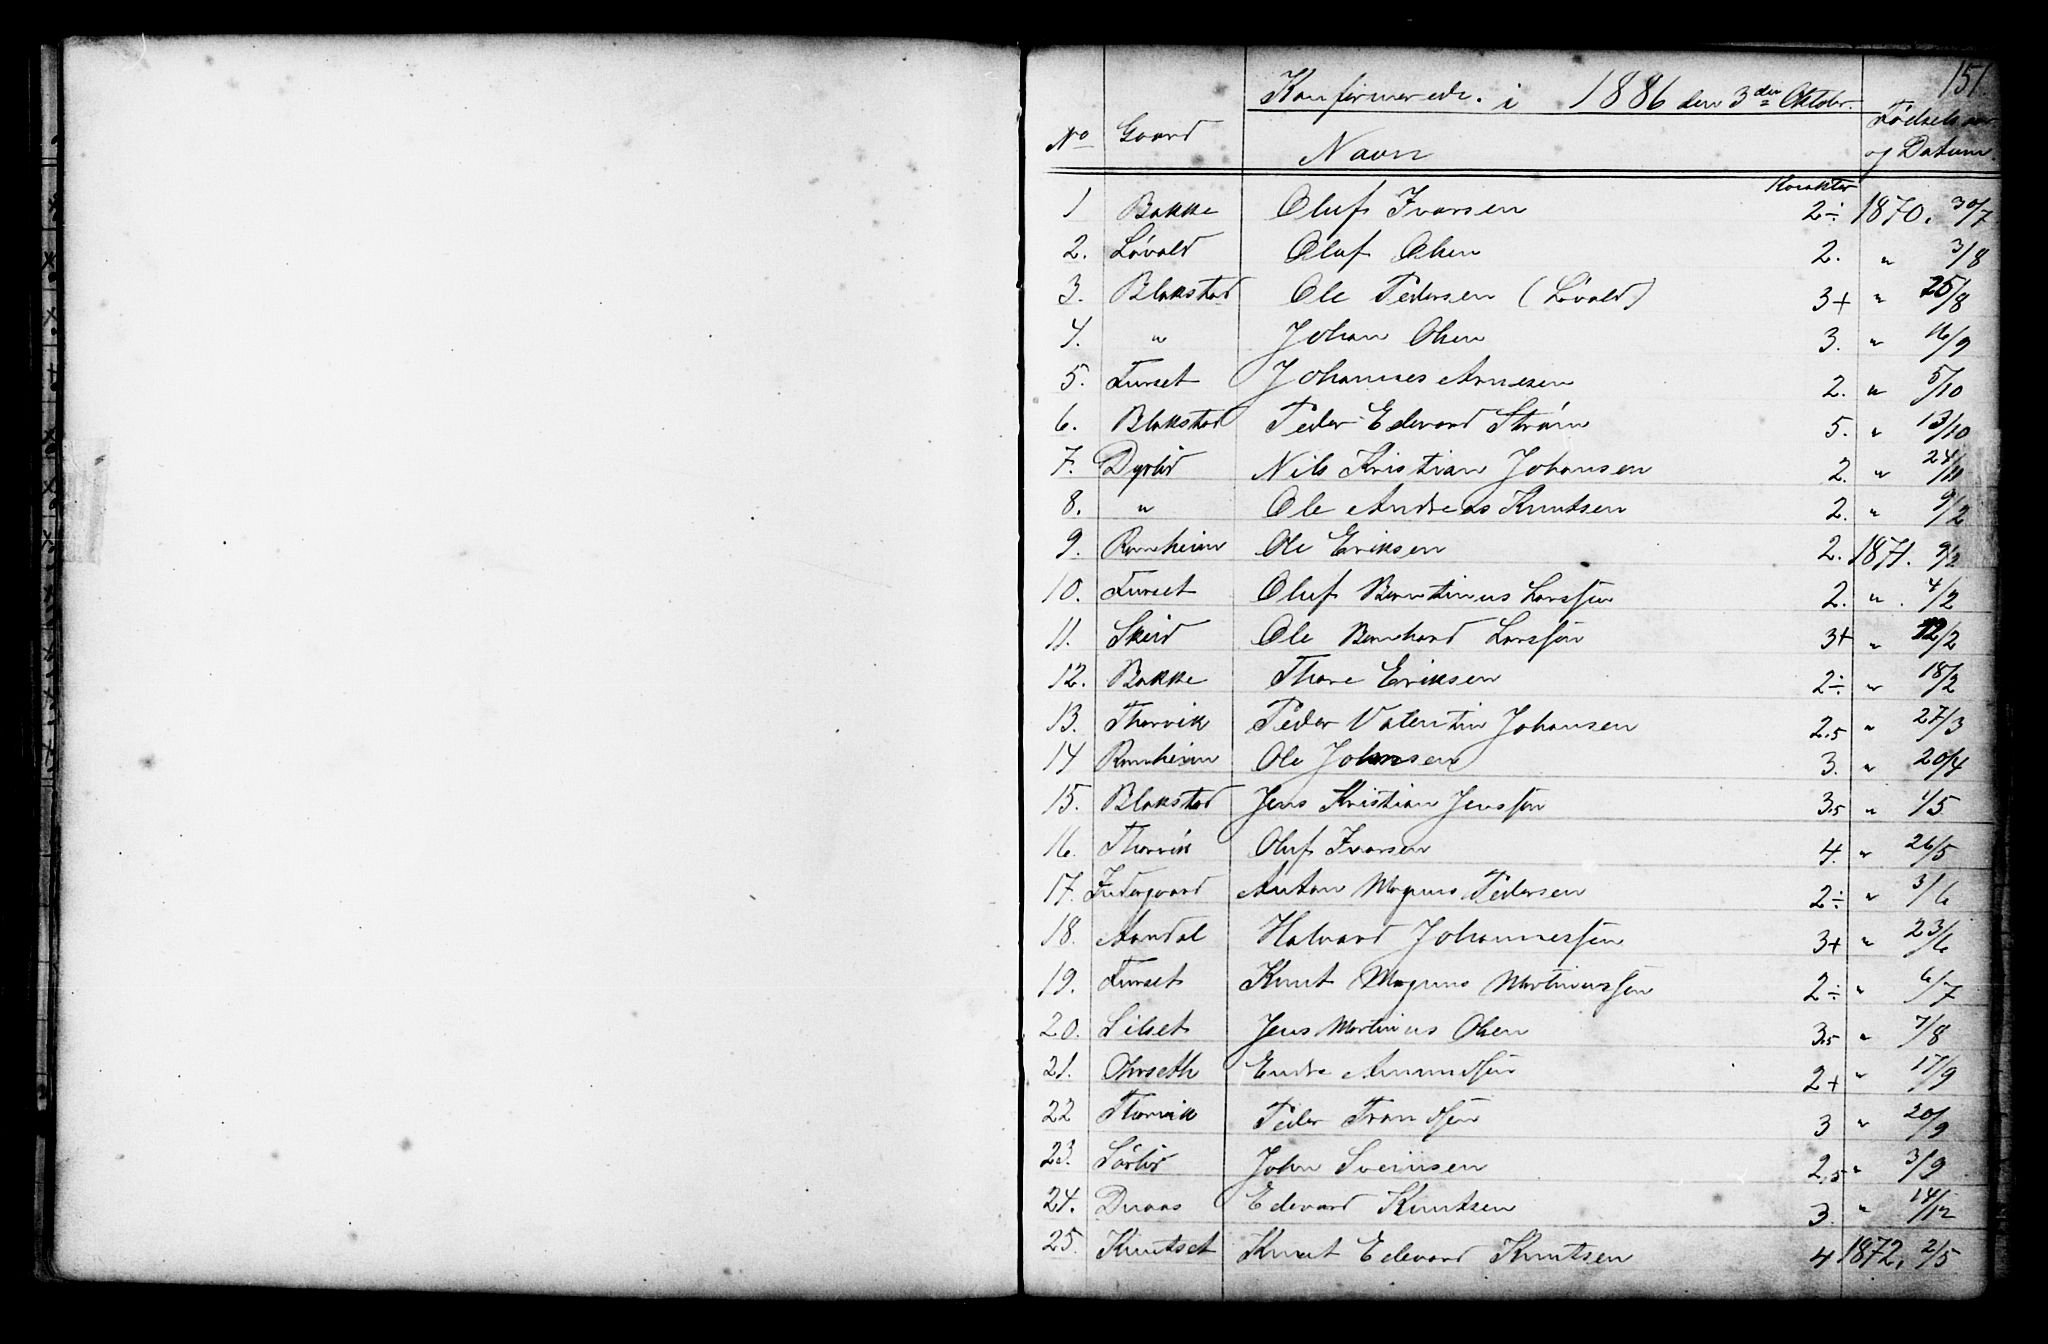 151
Konfirmerede i 1886 den 3die Oktobr.
No Gaard Navn Karakter Fødselsaar og Datum
1 Bakke Oluf Ivarsen 2÷ 1870. 30/7
2. Løvald Oluf Olsen 2. " 3/8
3. Blakstad Ole Pedersen (Løvald) 3+ " 25/8
4. " Johan Olsen 3. " 16/9
5. Furset Johannes Arnesen 2. " 5/10
6. Blakstad Peder Edevard Strøm 5. " 13/10
7. Dyrlid Nils Kristian Johansen 2. " 24/11
8. " Ole Andreas Knutsen 2. " 9/2
9. Ranheim Ole Eriksen 2. 1871. 9/2
10. Furset Oluf Berntinus Larssen 2. " 4/2
11. Skeid Ole Bernhard Larssen 3+ " 12/2
12. Bakke Thore Eriksen 2÷ " 18/2
13. Thorvik Peder Valentin Johansen 2,5 " 27/3
14 Ranheim Ole Johnsen 3. " 20/4
15. Blakstad Jens Kristian Jenssen 3,5 " 1/5
16. Thorvik Oluf Ivarsen 4. " 26/5
17. Indergaard Anton Magnus Pedersen 2÷ " 3/6
18. Aandal Halvard Johannessen 3+ " 23/6
19. Furset Knut Magnus Martinussen 2÷ " 6/7
20. Silset Jens Martinus Olsen 3,5 " 7/8
21. Orseth Endre Amundsen 2+ " 17/9
22 Thorvik Peder Trondsen 3 " 20/9
23. Sørlid John Sveinsen 2,5 " 3/9
24. Duaas Edevard Knutsen 3. " 14/12
25. Knutset Knut Edevard Knutsen 4 1872, 2/5